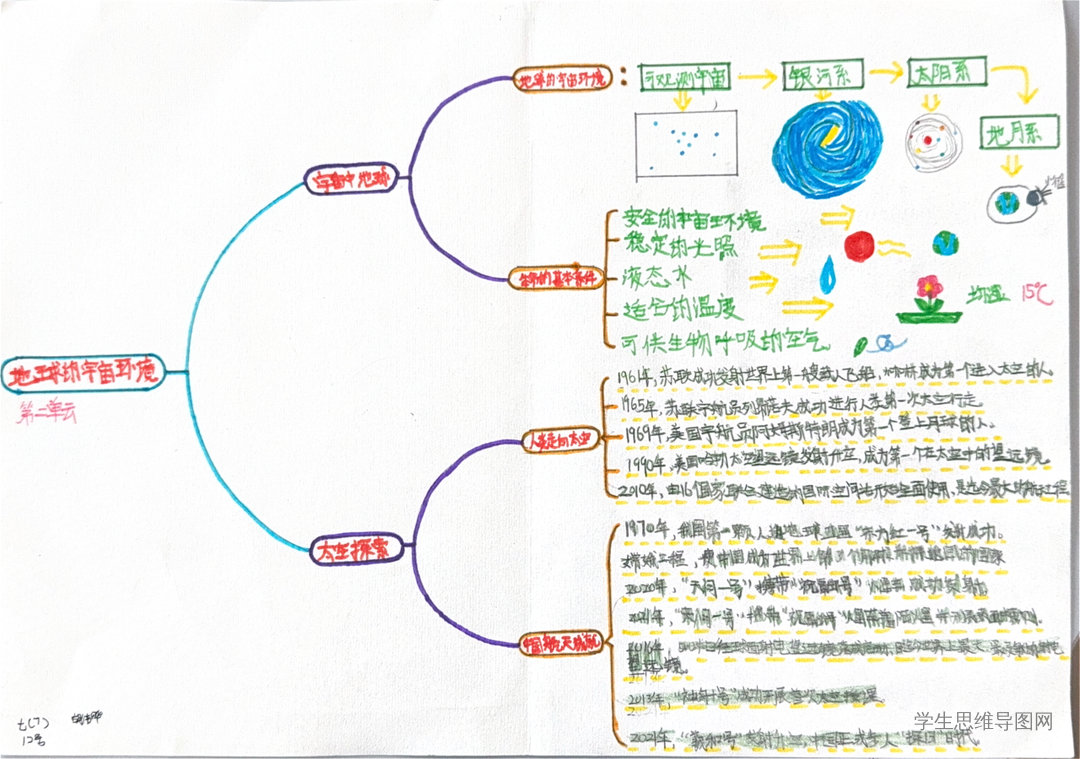 地球的宇宙环境
第二单云
宇宙中地球
太空探索
地球的宇宙环境：
可观测宇宙
银河系
太阳系
地月系
生命的基本条件
安全的宇宙环境
稳定的光照
液态水
适合的温度
均温 15℃
可供生物呼吸的空气
人类走向太空
1961年，苏联成功发射世界上第一艘载人飞船，加加林成为第一个进入太空的人。
1965年，苏联宇航员列昂诺夫成功进行人类第一次太空行走。
1969年，美国宇航员阿姆斯特朗成为第一个登上月球的人。
1990年，美国哈勃太空望远镜发射升空，成为第一个在太空中的望远镜
2010年，由16个国家联合建造的国际空间站开始全面使用，是迄今最大的航天工程
中国航天成就
1970年，我国第一颗人造地球卫星“东方红一号”发射成功。
嫦娥工程，使中国成为世界上第三个
2020年，“天问一号”携带“祝融号”火星车成功发射
2021年，“天问一号”携带“祝融号”
2016年，
望远镜。
2013年，“神舟十号”成功开展首次太空授课。
2021年，“羲和号”发射升空，中国正式步入“探日”时代。
七(7)
12号
学生思维导图网